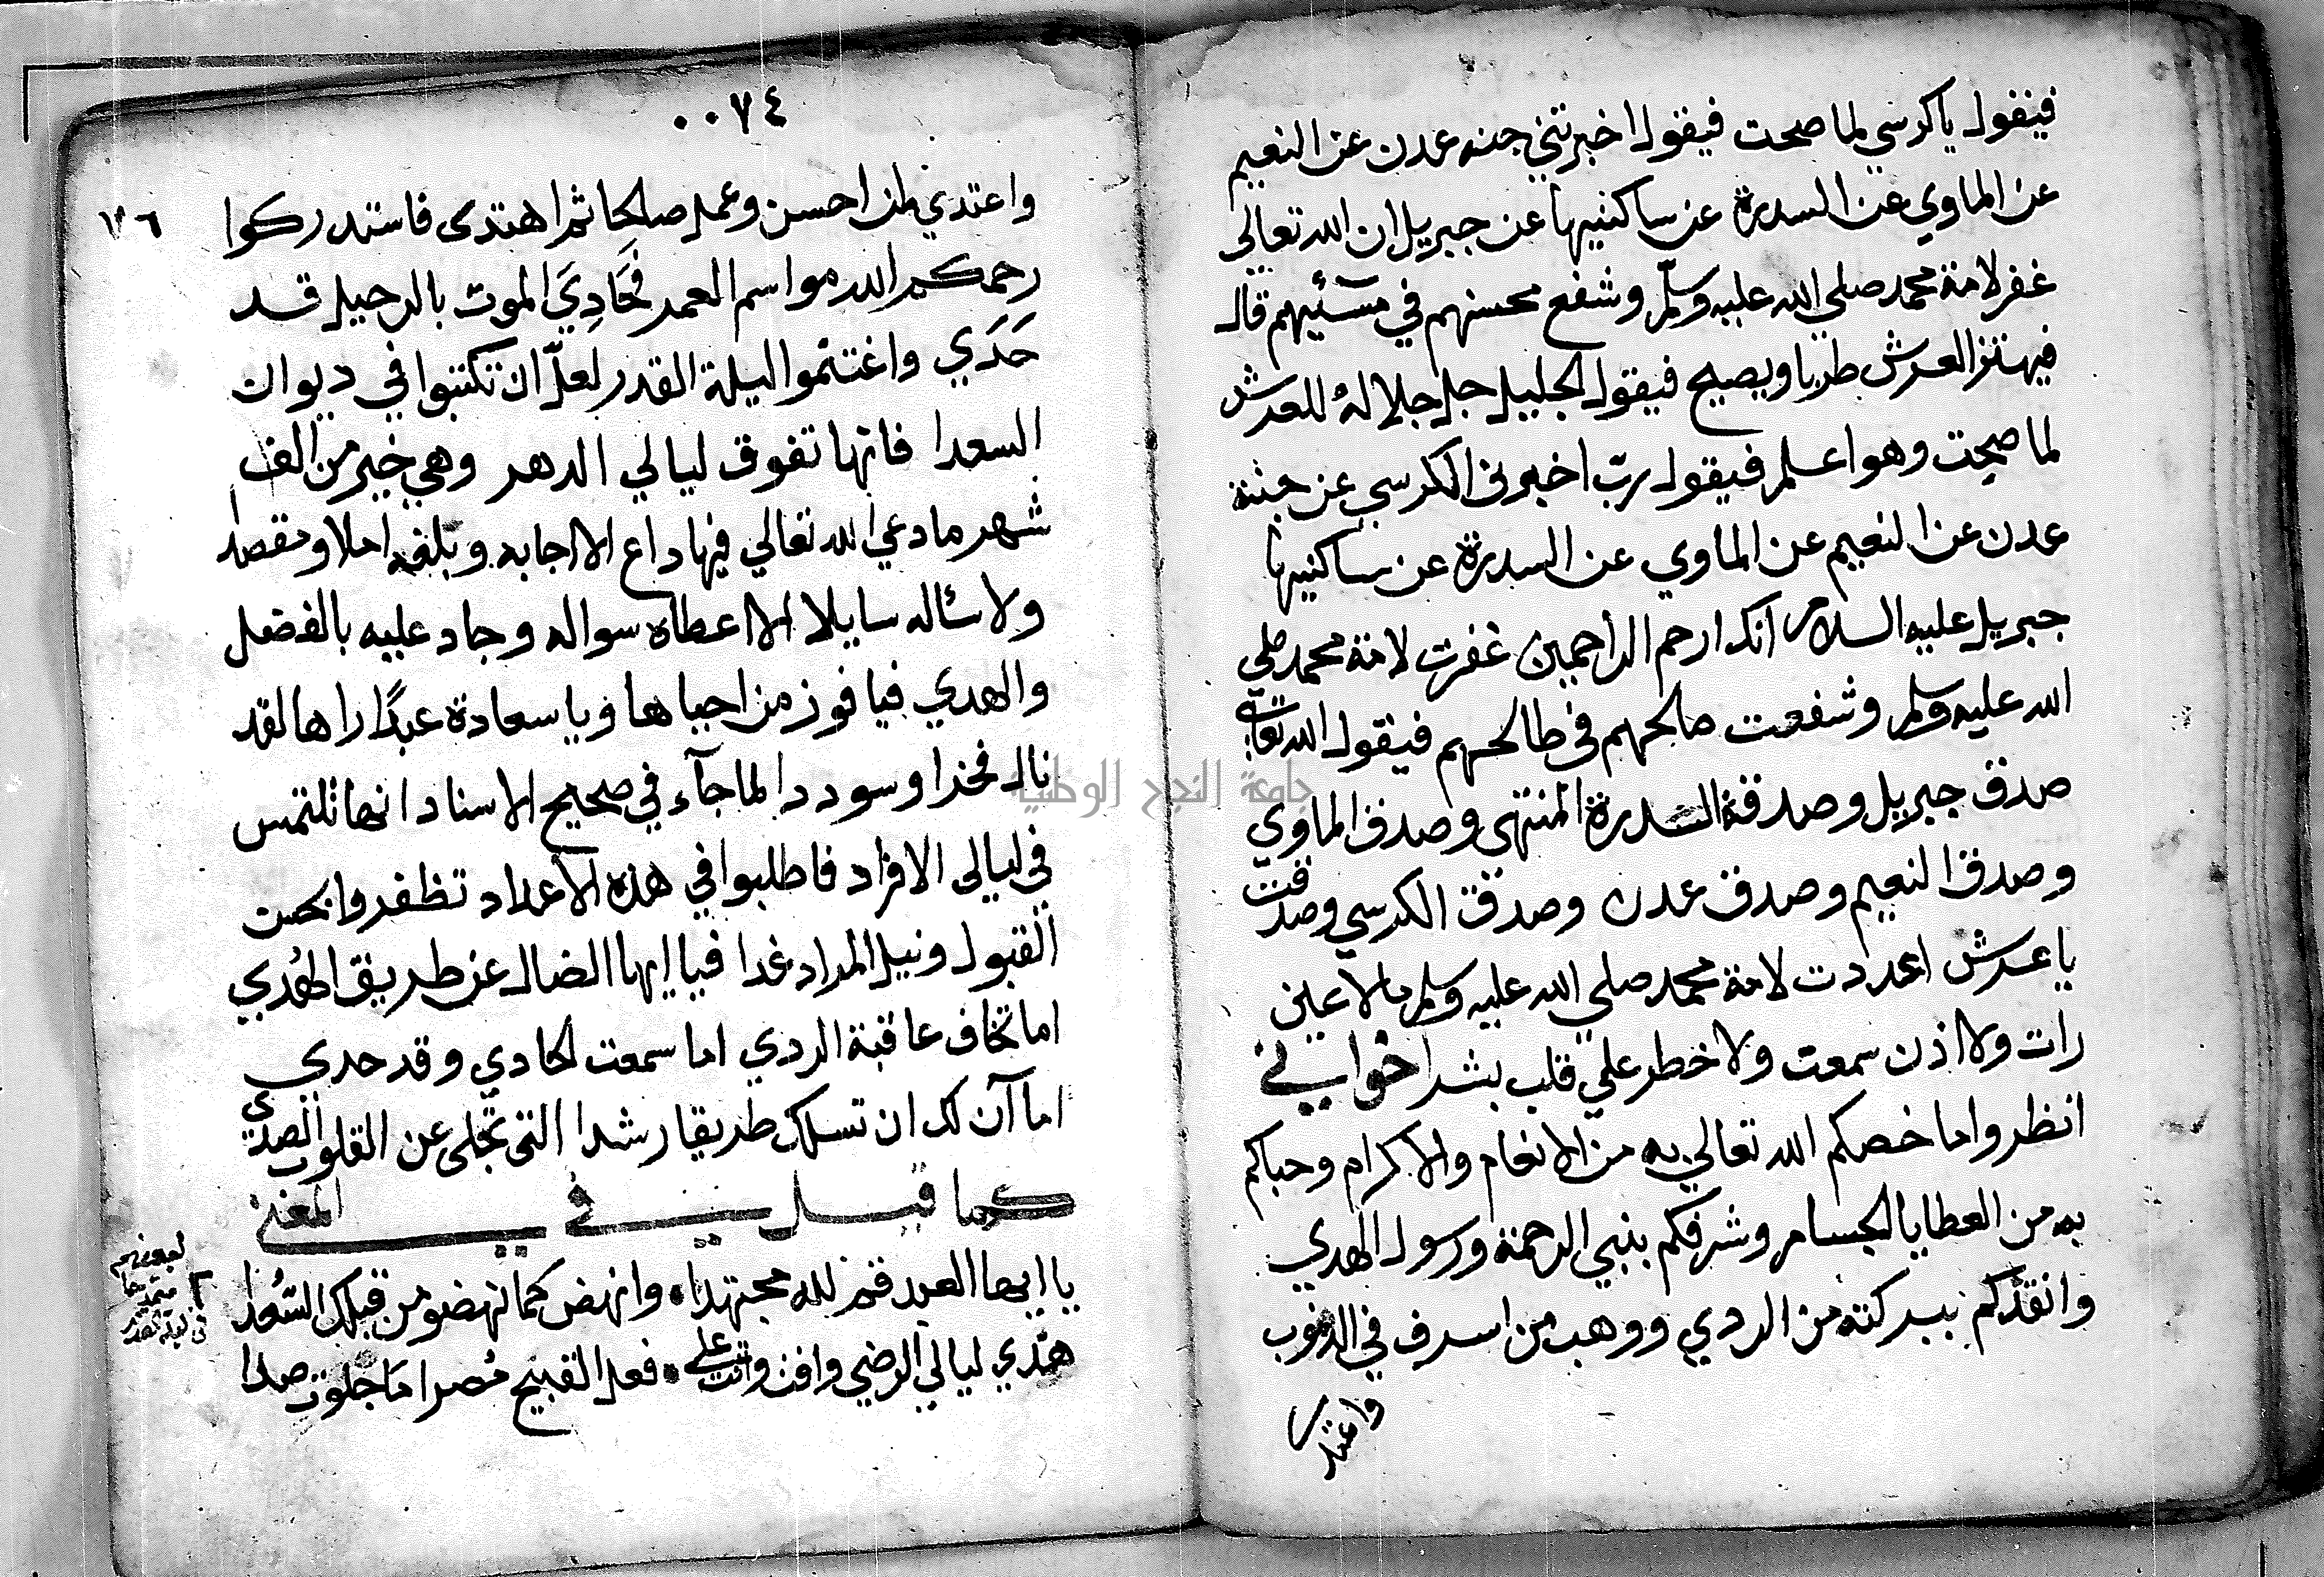 فيقول ياكرسي لما صحت فيقول اخبرتني جنه عدن عن النعيم
عن الماوي عن السدرة عن ساكنيها عن جبريل ان الله تعالى
غفر لامة محمد صلي الله عليه وسلم وشفع محسنهم في مسئيهم قال
فيهتز العرش طربا ويصيح فيقول الجليل جل جلاله للعرش
لما صحت وهو اعلم فيقول ربّ اخبرني الكرسي عن جنة
عدن عن النعيم عن الماوي عن السدرة عن ساكنيها
جبريل عليه السلام انك ارحم الراحمين غفرت لامة محمد صلي
الله عليه وسلم وشفعت صالحهم في طالحهم فيقول الله تعالى
صدق جبريل وصدقة السدرة المنتهى وصدق الماوي
وصدق النعيم وصدق عدن وصدق الكرسي وصدقت
يا عرش اعددت لامة محمد صلي الله عليه وسلم مالا عين
رات ولا اذن سمعت ولا خطر علي قلب بشر اخواني
انظروا ما خصكم الله تعالي به من الانعام والاكرام وحباكم
به من العطايا الجسام وشرفكم بنبي الرحمة ورسول الهدي
وانقذكم ببركته من الردي ووهب من اسرف في الذنوب
واعتدي
٠٠٧٤
١٣٦
واعتدي لمن احسن وعمل صالحا ثم اهتدى فاستدركوا
رحمكم الله مواسم العمر فَحَادِيَ الموت بالرحيل قد
حَدَي واغتنموا ليلة القدر لعلّ ان تكتبوا في ديوان
السعدا فانها تفوق ليالي الدهر وهي خير من الف
شهر ما دعي الله تعالي فيها داع الا اجابه وبلغه املا ومقصدا
ولا سئاله سايلا الا اعطاه سواله وجاد عليه بالفضل
والهدي فيا فوز من احياها ويا سعادة عبدًا راها لقد
نال فخرا وسوددا لما جآء في صحيح الاسناد انها تلتمس
في ليالي الافراد فاطلبوا في هذه الاعداد تظفروا بحسن
القبول ونيل المراد غدا فيا ايها الضال عن طريق الهُدي
اما تخاف عاقبة الردي اما سمعت الحادي وقد حدي
اما آن لك ان تسلك طريقا رشدا التي تجلى عن القلوب الصدي
كما قيل في المغني
يا ايها العبد قم لله مجتهدا • وانهض كما نهضو من قبلك السُّعدا
هذي ليالي الرضي وافت وانت علي • فعل القبيح مُصرا مَا جلوت صدا
لبعضهم
في ليلة القدر
جامعة النجاح الوطنية